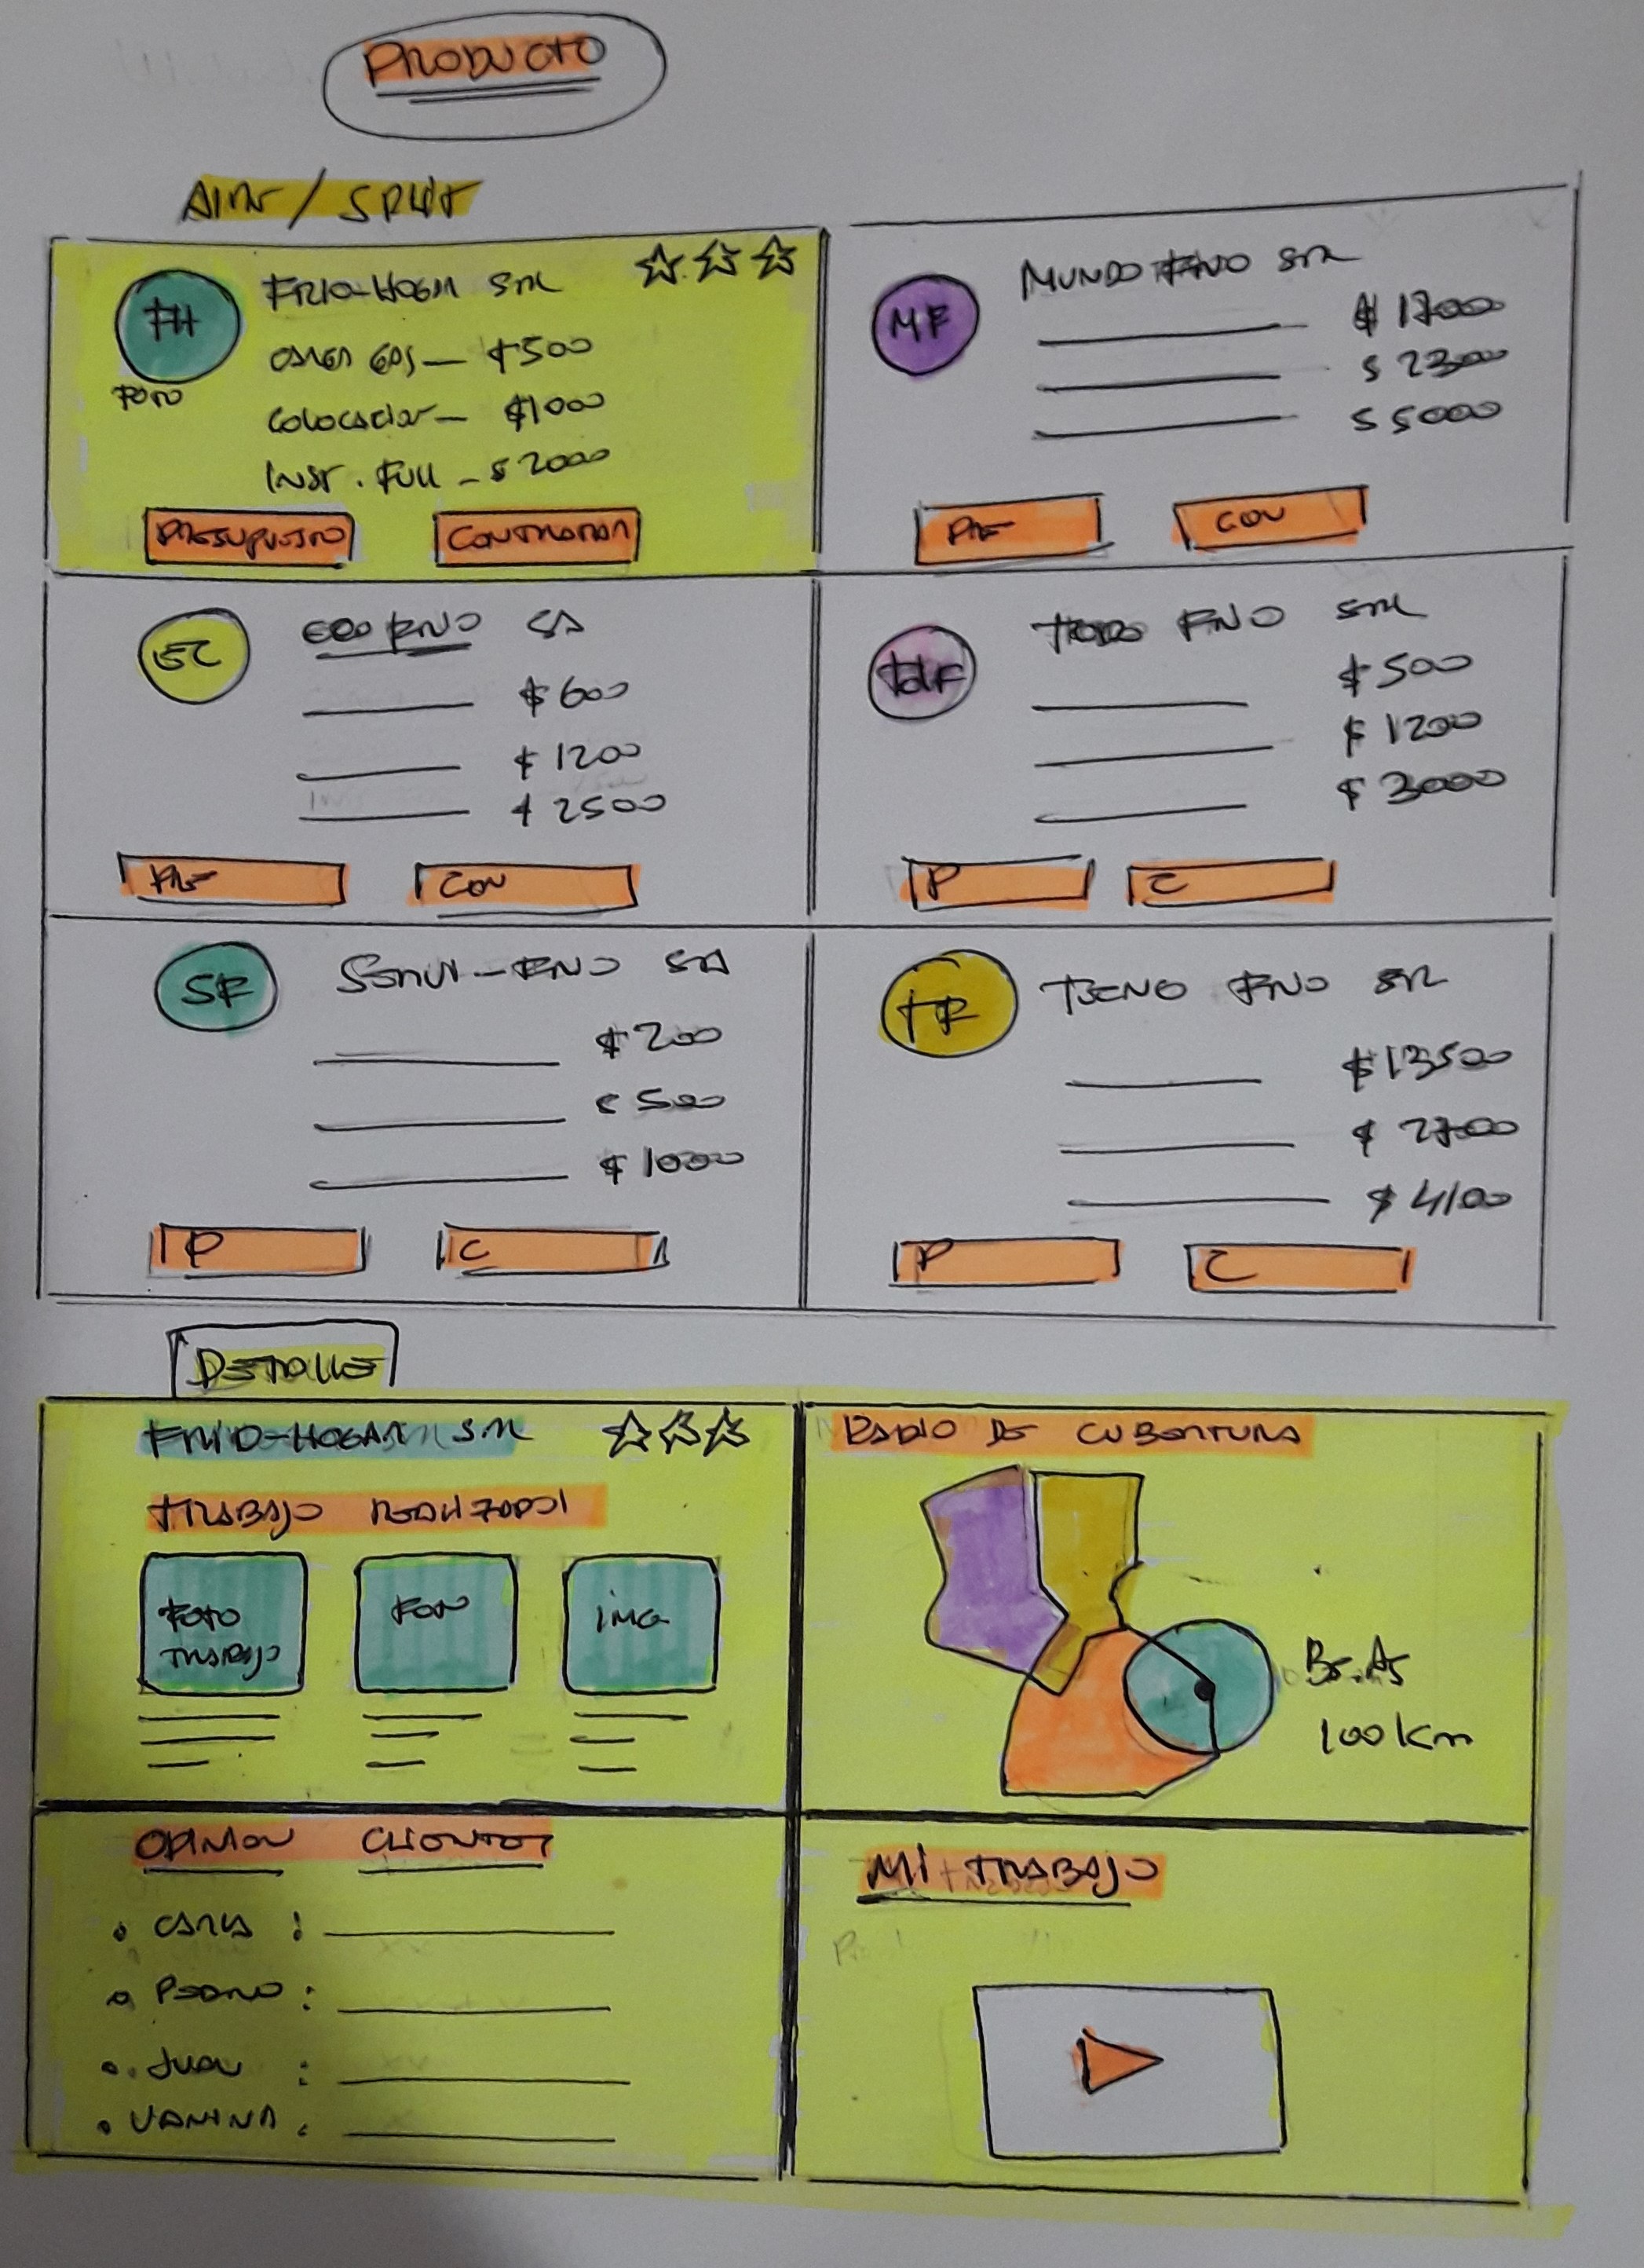 PRODUCTO
AIRE / SPLIT
FH
FOTO
FRIO-HOGAR SRL
CARGA GAS — $500
COLOCACION — $1000
INST. FULL - $2000
PRESUPUESTO
CONTRATAR
MF
MUNDO FRIO SRL
$ 1700
$ 2300
$ 5000
PRE
CON
EC
ECO FRIO SA
$ 600
$ 1200
$ 2500
PRE
CON
TdF
TODO FRIO SRL
$ 500
$ 1200
$ 3000
P
C
SF
SERVI-FRIO SRL
$ 200
$ 500
$ 1000
P
C
TF
TECNO FRIO SRL
$ 13500
$ 2700
$ 4100
P
C
DETALLE
FRIO-HOGAR SRL
TRABAJO REALIZADOS
FOTO
TRABAJO
FOTO
IMG
RADIO DE CUBERTURA
Bs.As
100 Km
OPINION CLIENTES
• CARLA :
• PEDRO :
• JUAN :
• VANINA :
MI TRABAJO